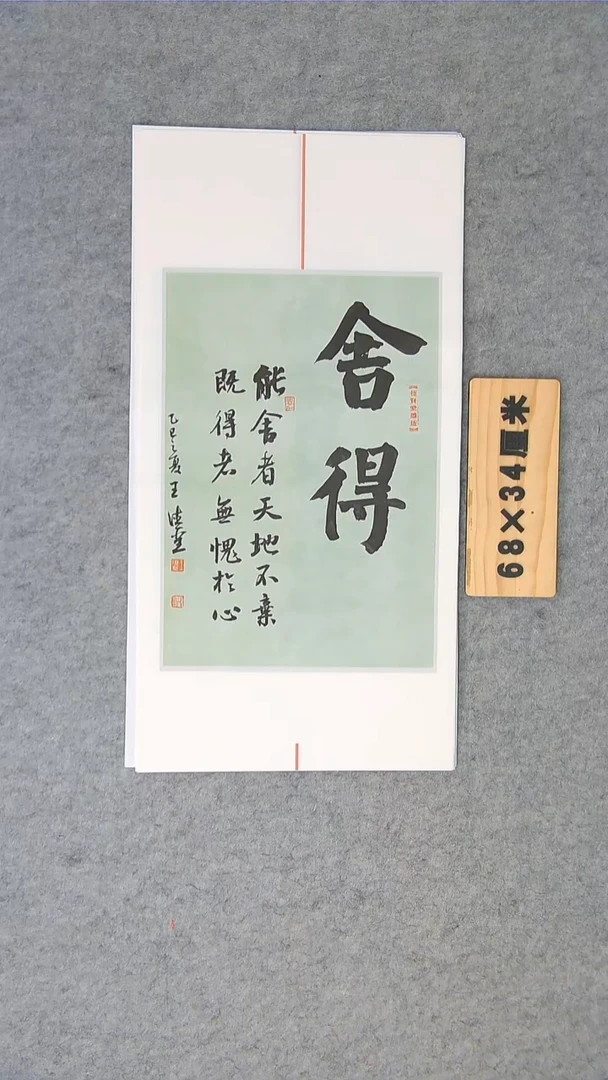 舍得
能舍者天地不棄
既得者無愧於心
乙巳之夏王
68×34厘米